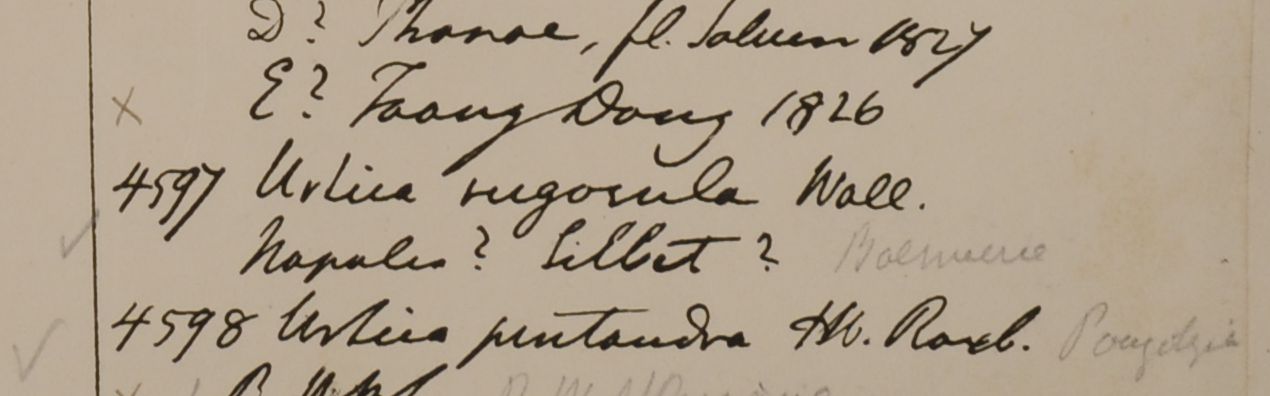 D? Thanae, fl. Saluen 1827
x E? Taong Dong 1826
4597 Urtica rugosula Wall.
Napalia? Sillet? Boehmeria
4598 Urtica pentandra Hb. Roxb. Pouzolzia